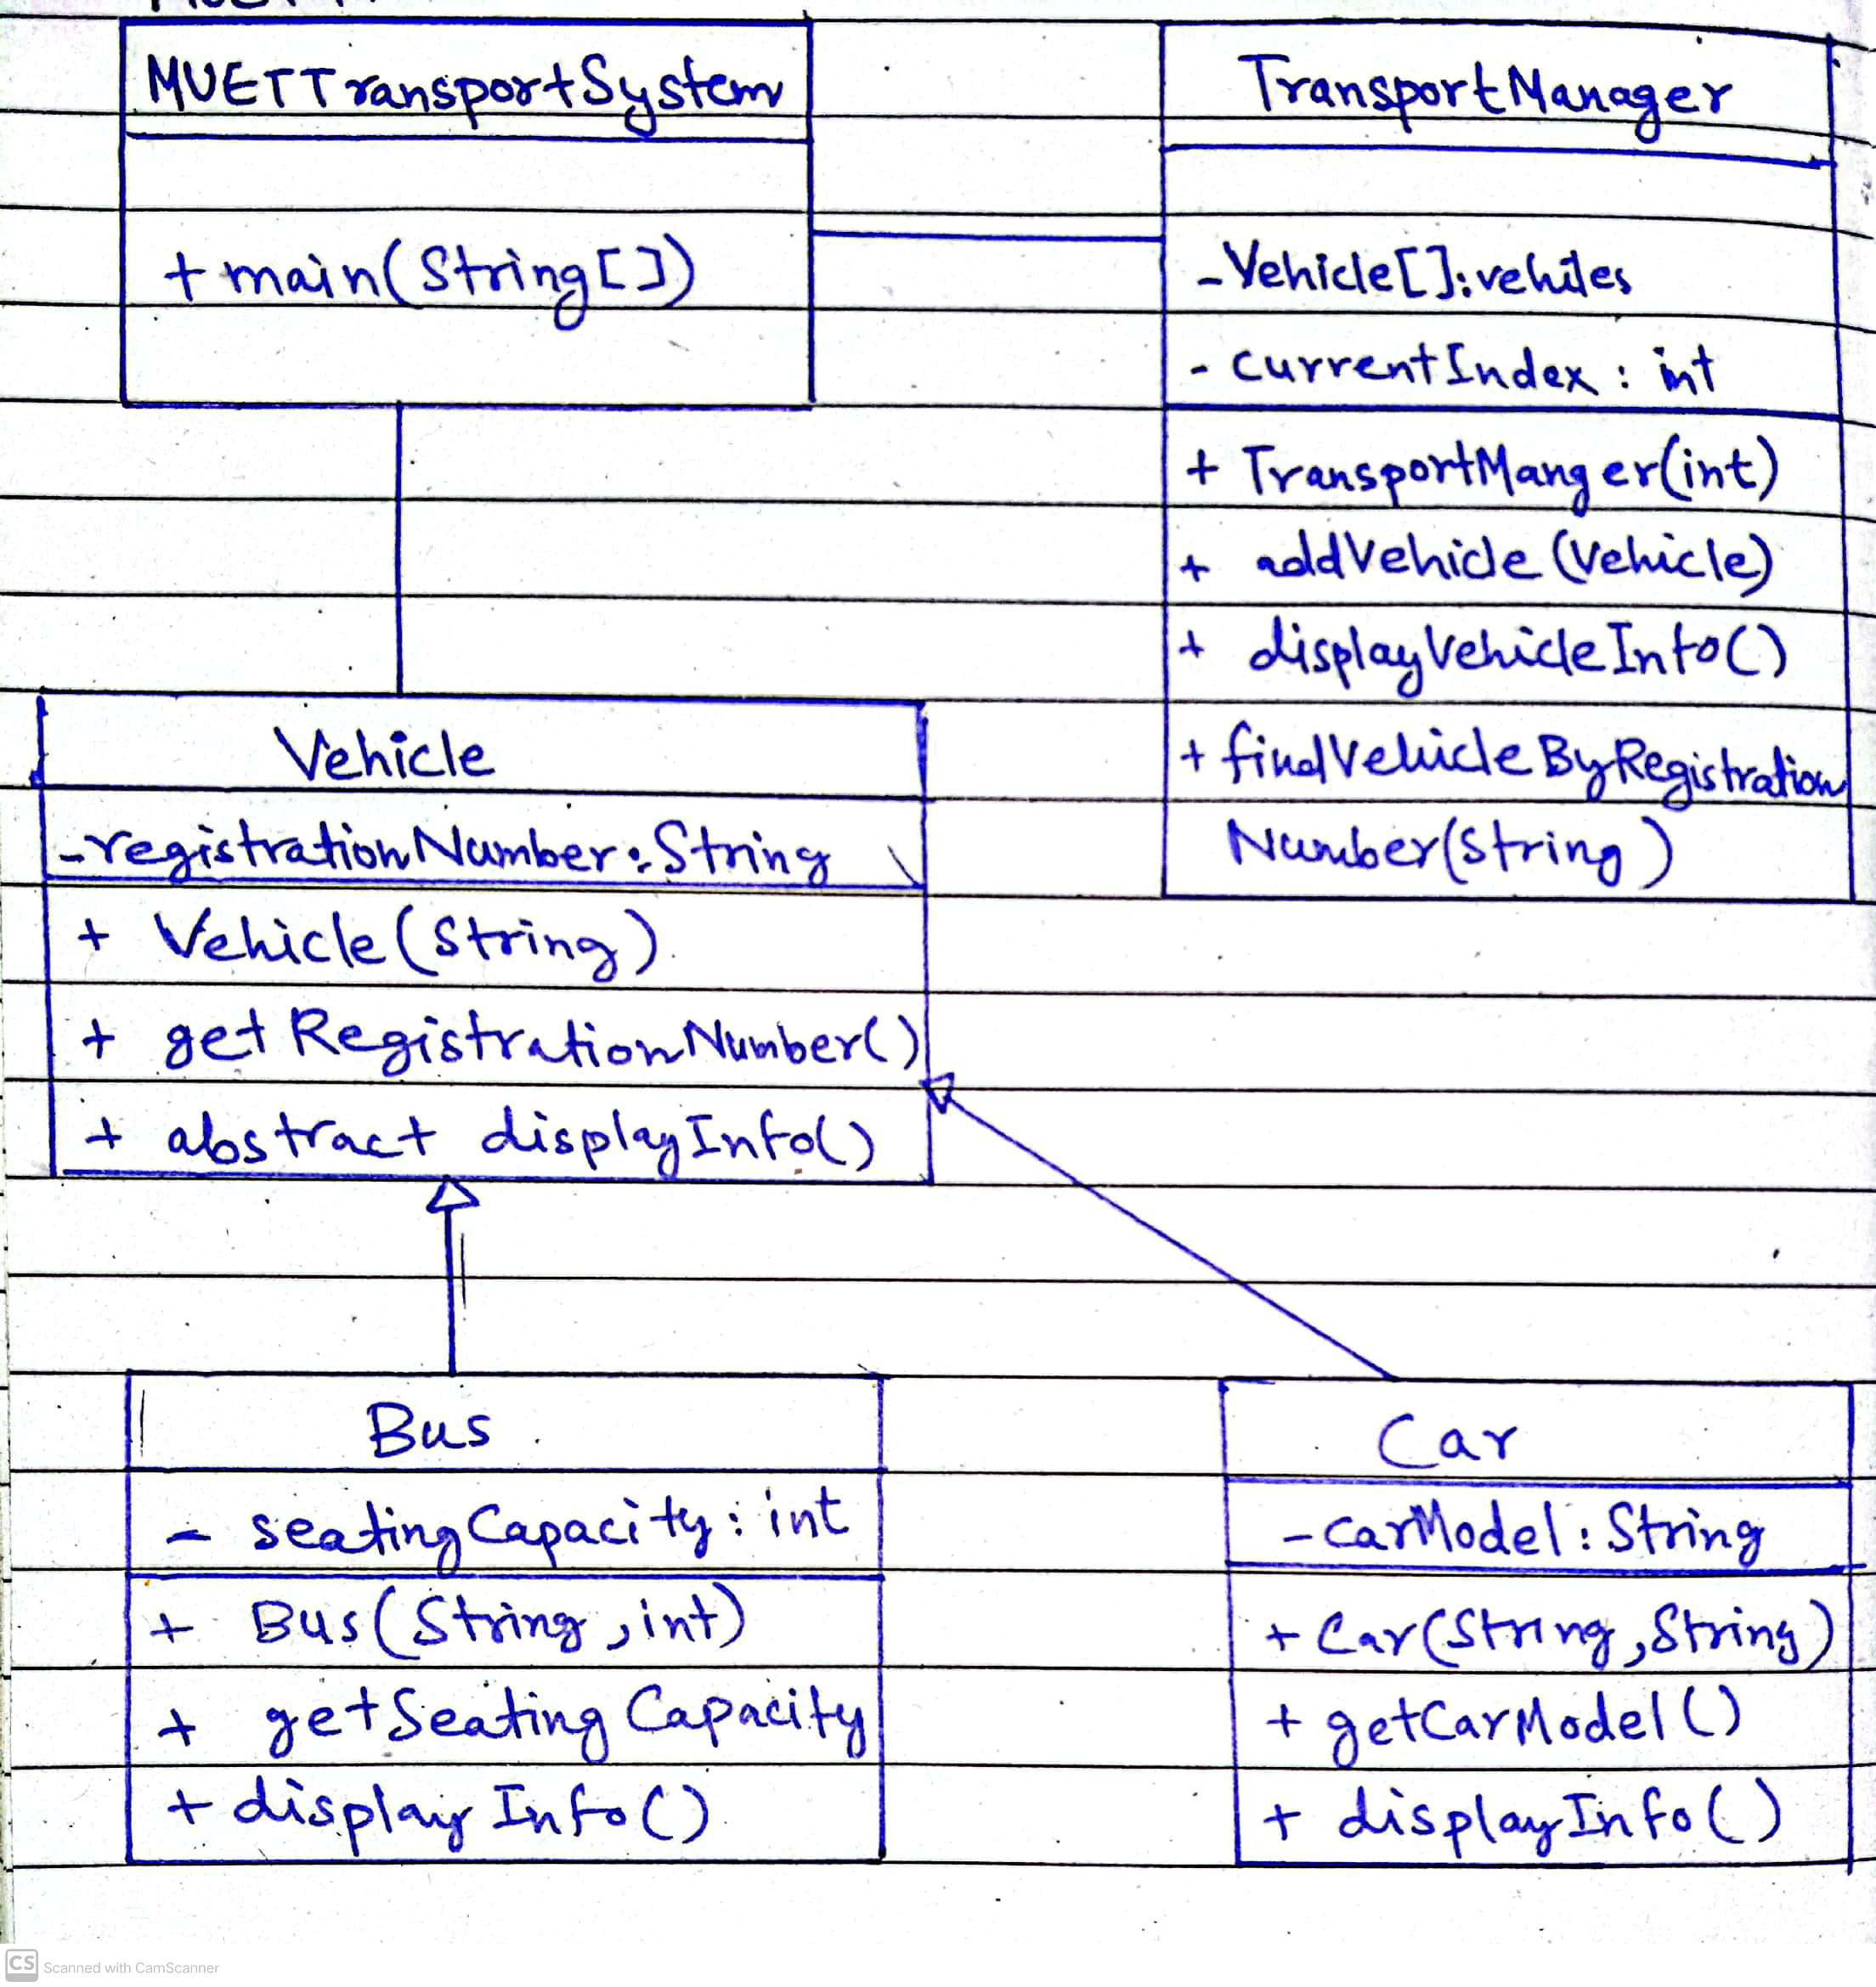 MUETTransportSystem
+ main(String[])
TransportManager
- Vehicle[]: vehiles
- currentIndex : int
+ TransportManger(int)
+ addVehicle (Vehicle)
+ displayVehicleInfo()
+ findVehicleByRegistration
Number(String)
Vehicle
- registrationNumber: String
+ Vehicle(String)
+ getRegistrationNumber()
+ abstract displayInfo()
Bus
- seatingCapacity: int
+ Bus(String, int)
+ getSeatingCapacity
+ displayInfo()
Car
- carModel: String
+ Car(String, String)
+ getCarModel()
+ displayInfo()
CS Scanned with CamScanner